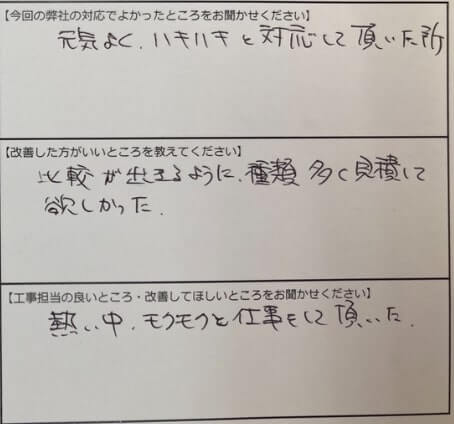 【今回の弊社の対応でよかったところをお聞かせください】
元気よく、ハキハキと対応して頂いた所
【改善した方がいいところを教えてください】
比較が出きるように、種類多く見積して
欲しかった。
【工事担当の良いところ・改善してほしいところをお聞かせください】
熱い中、モクモクと仕事をして頂いた。